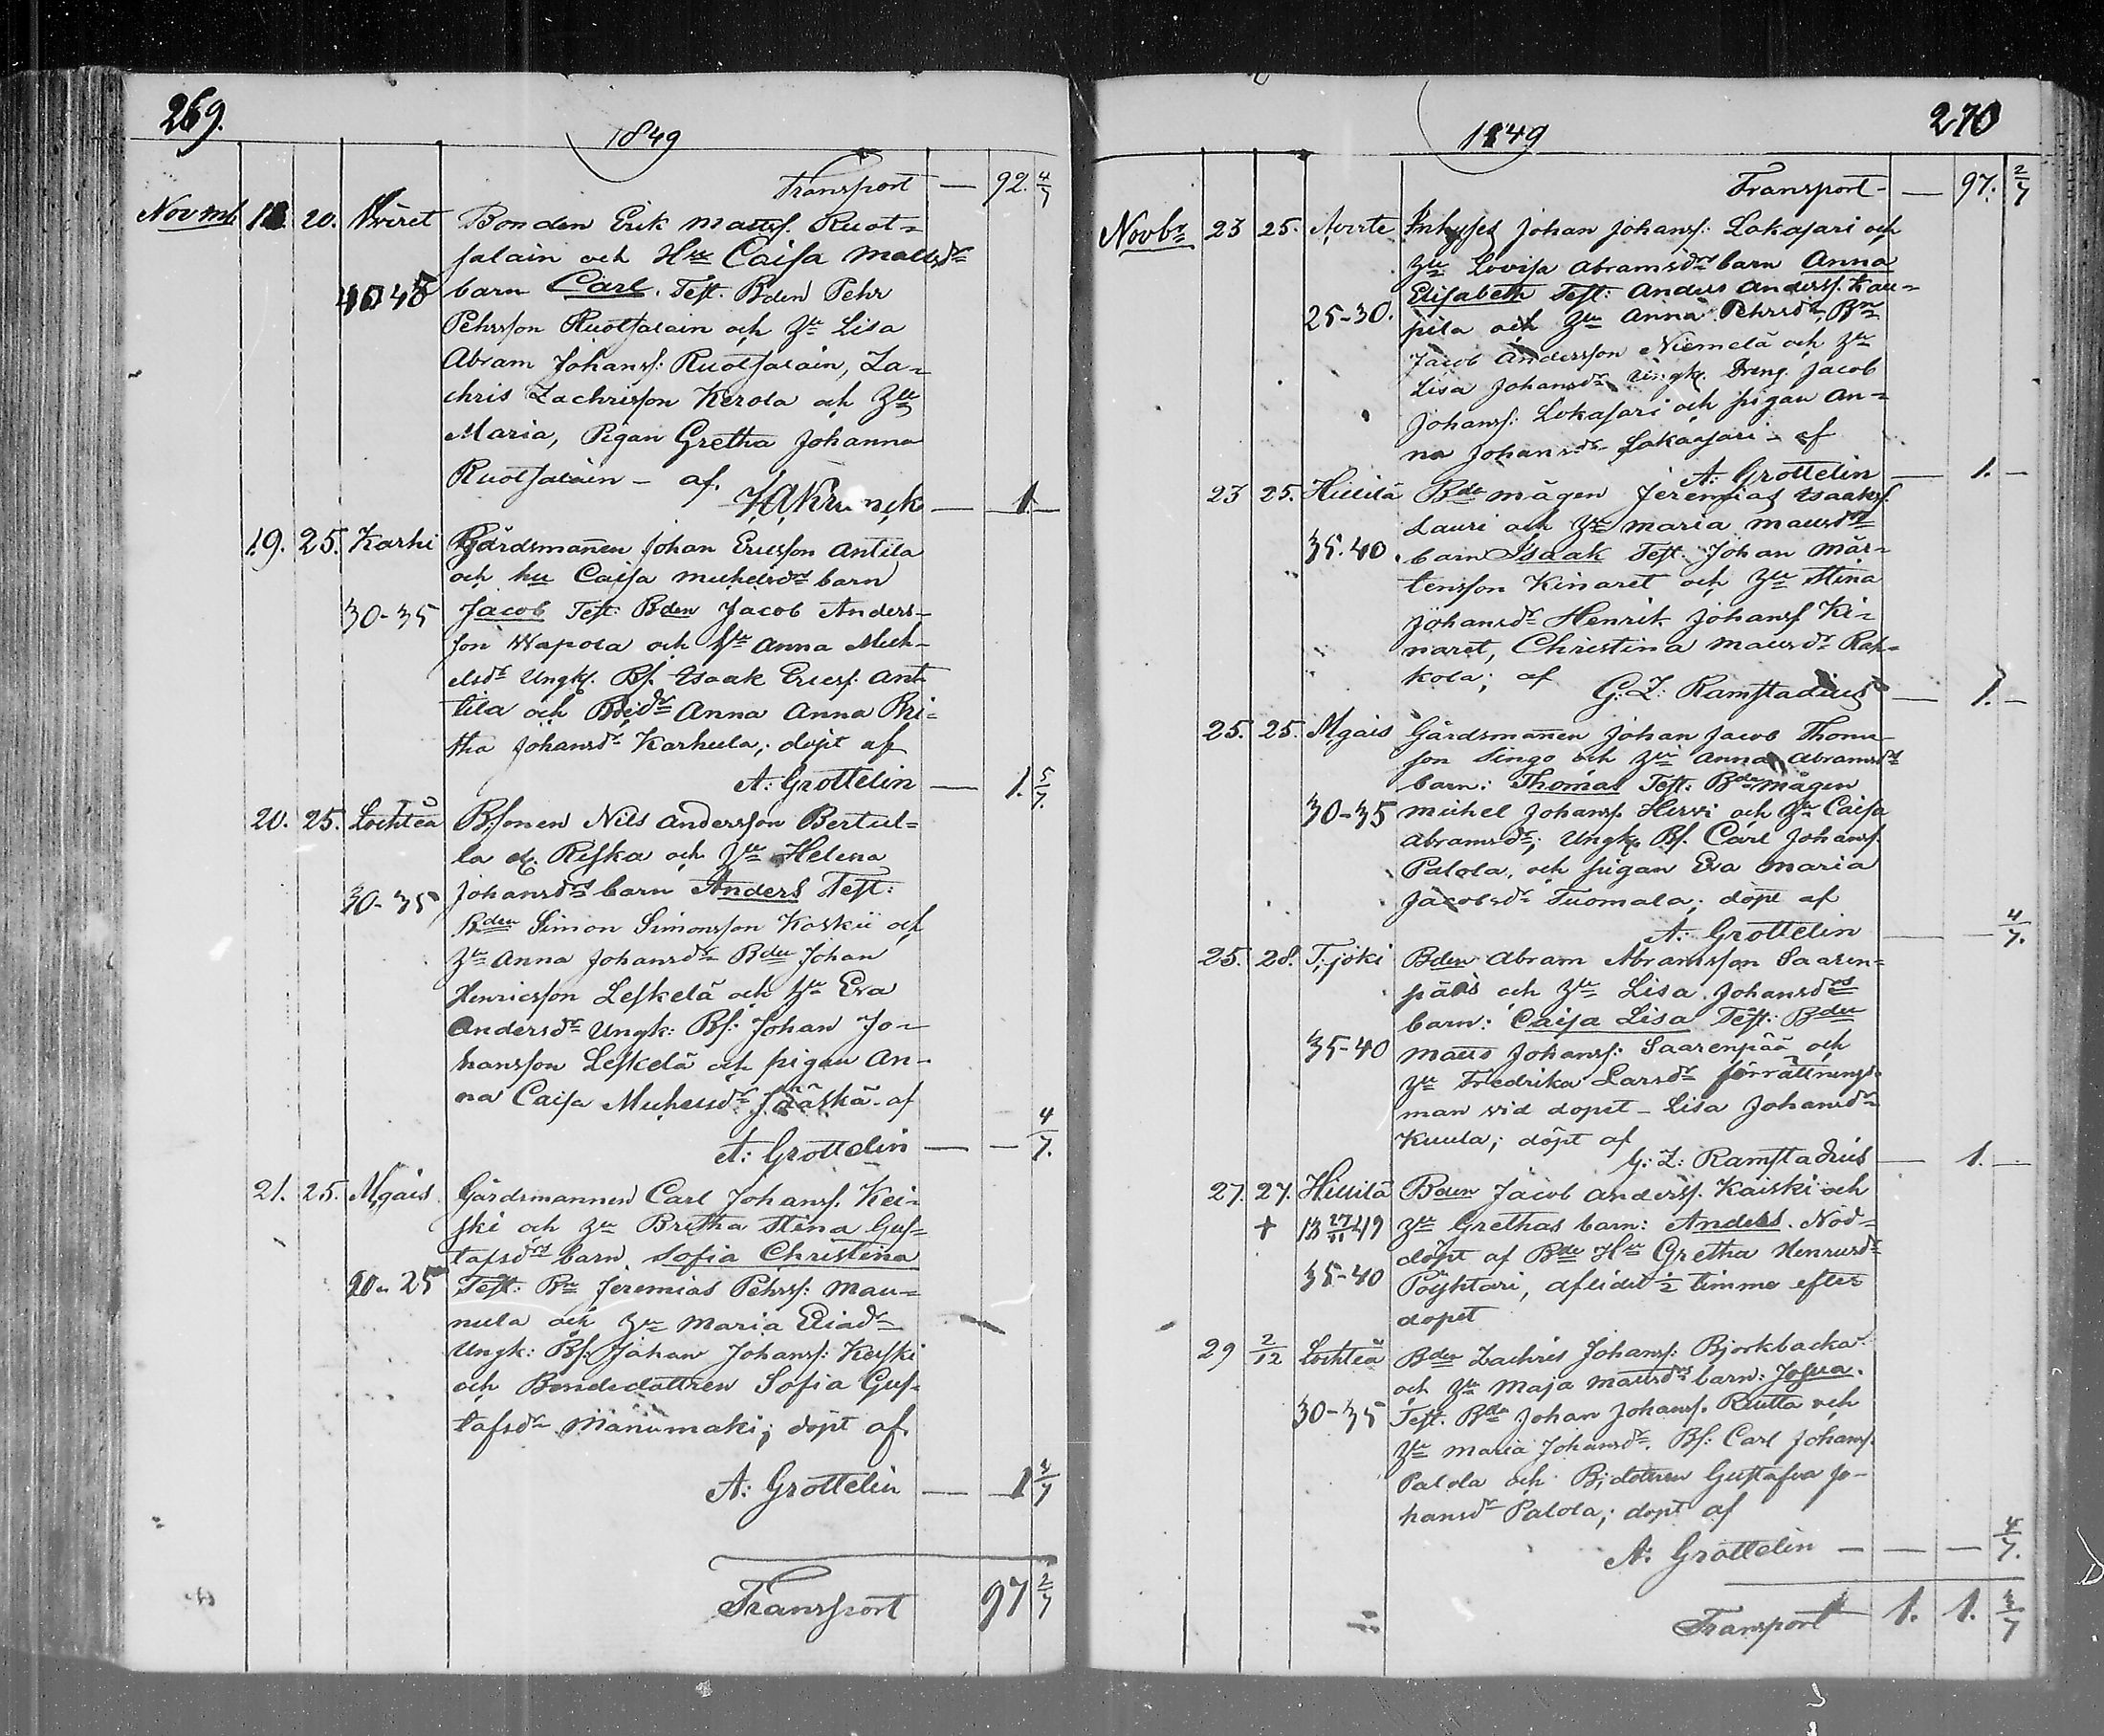 269.
1849
Transport — 92. 4/7
Novmb 18 20. Wiret Bonden Erik Mattss. Ruot=
salain och Hru Caisa Mattsdrs
40 45 barn Carl. Test. Bden Pehr
Pehrsson Ruotsalain och Hu Lisa
Abram Johanss: Ruotsalain, Za=
chris Zachrisson Kerola och Hu
Maria, Pigan Gretha Johanna
Ruotsalain — af.
— 1. —
19. 25. Karhi Gårdsmannen Johan Ericsson Antila
och hu Caisa Michelsdrs barn
30-35 Jacob Test: Bden Jacob Anders-
son Wapola och Hu Anna Mich-
elsdr Ungk. Bs. Isaak Ericss. Ant
tila och Bdr Anna Anna Bri=
tha Johansdr Karhula; döpt af
A: Grottelin — 1. 5/7
20. 25. Lochteå B:sonen Nils Andersson Bertul=
la Riska och Hu Helena
30-35 Johansdrs barn Anders Test:
Bden Simon Simonsson Koskii och
Hu Anna Johansdr Bden Johan
Henricsson Leskelä och Hu Eva
Andersdr Ungk: Bs: Johan Jo=
hansson Leskelä och pigan An-
na Caisa Michelsdr Jääskä. af
A: Grottelin — — 4/7.
21. 25. Mgäis Gårdsmannen Carl Johanss. Kei-
ski och Hu Bretha Stina Gus=
tafsdrs barn. Sofia Christina
20-25 Test: Bn Jeremias Pehrss: Mau=
nula och Hu Maria Eliadr
Ungk: Bs: Johan Johanss: Keiski
och Bondedottren Sofia Gus-
tafsdr Mänumaki; döpt af.
A: Grottelin — 1 3/7
Transport 97 2/7
270
1849
Transport — 97. 2/7
Novbr 23 25. Inhyses Johan Johanss: Lokasari och
Hu Lovisa Abramsdrs barn Anna
Elisabeth Test: Anders Anderss. Kau=
25-30. pila och Hu Anna Pehrsdr, Bn
Jacob Andersson Niemelä och Hu
Lisa Johansdr Ungk. Dreng Jacob
Johanss: Lokasari och pigan An=
na Johansdr Lokasari — af
A: Grottelin — 1. —
23 25. Hillilä Bde mågen Jeremias Isaakss.
Lauri och Hu Maria Mattsdrs
35.40. barn Isaak Test. Johan Mår-
tensson Kinaret och Hu Stina
Johansdr Henrik Johanss Ki=
naret, Christina Mattsdr Rah-
kola; af
G: Z: Ramstadius — 1. —
25. 25. Mgäis Gårdsmannen Johan Jacob Thoma-
son Singo och Hu Anna Abramsdrs
barn: Thomas Test: Bdemågen
30-35 Michel Johanss. Hirvi och Hu Caisa
Abramsdr; Ungk. Bs. Carl Johanss.
Palola, och pigan Eva Maria
Jacobsdr Tuomala; döpt af
A: Grottelin — — 4/7.
25. 28. T:joki Bden Abram Abramsson Saaren=
pääs och Hu Lisa Johansdrs
barn: Caisa Lisa Test: Bden
35-40 Matts Johanss: Saarenpää och
Hu Fredrika Larsdr förrättnings-
man vid dopet — Lisa Johansdr
Kuula; döpt af
G: Z: Ramstadius — 1. —
27. 27. Hillilä Bden Jacob Anderss. Kaiski och
+ 27/11 49 Hu Grethas barn: Anders. Nöd=
döpt af Bde Hu Gretha Henricsdr
35-40 Pöyhtäri, aflidit 1/2 timme efter
dopet
29 2/12 Lochteå Bden Zachris Johanss: Bjorkbacka
och Hu Maja Mattsdrs barn: Josua.
30-35 Test. Bde Johan Johanss. Rutta och
Hu Maria Johansdr. Bs: Carl Johanss.
Palola och B:dottren Gustafva Jo-
hansdr Palola; döpt af
A: Grottelin — — — 4/7.
Transport 1. 1. 3/7